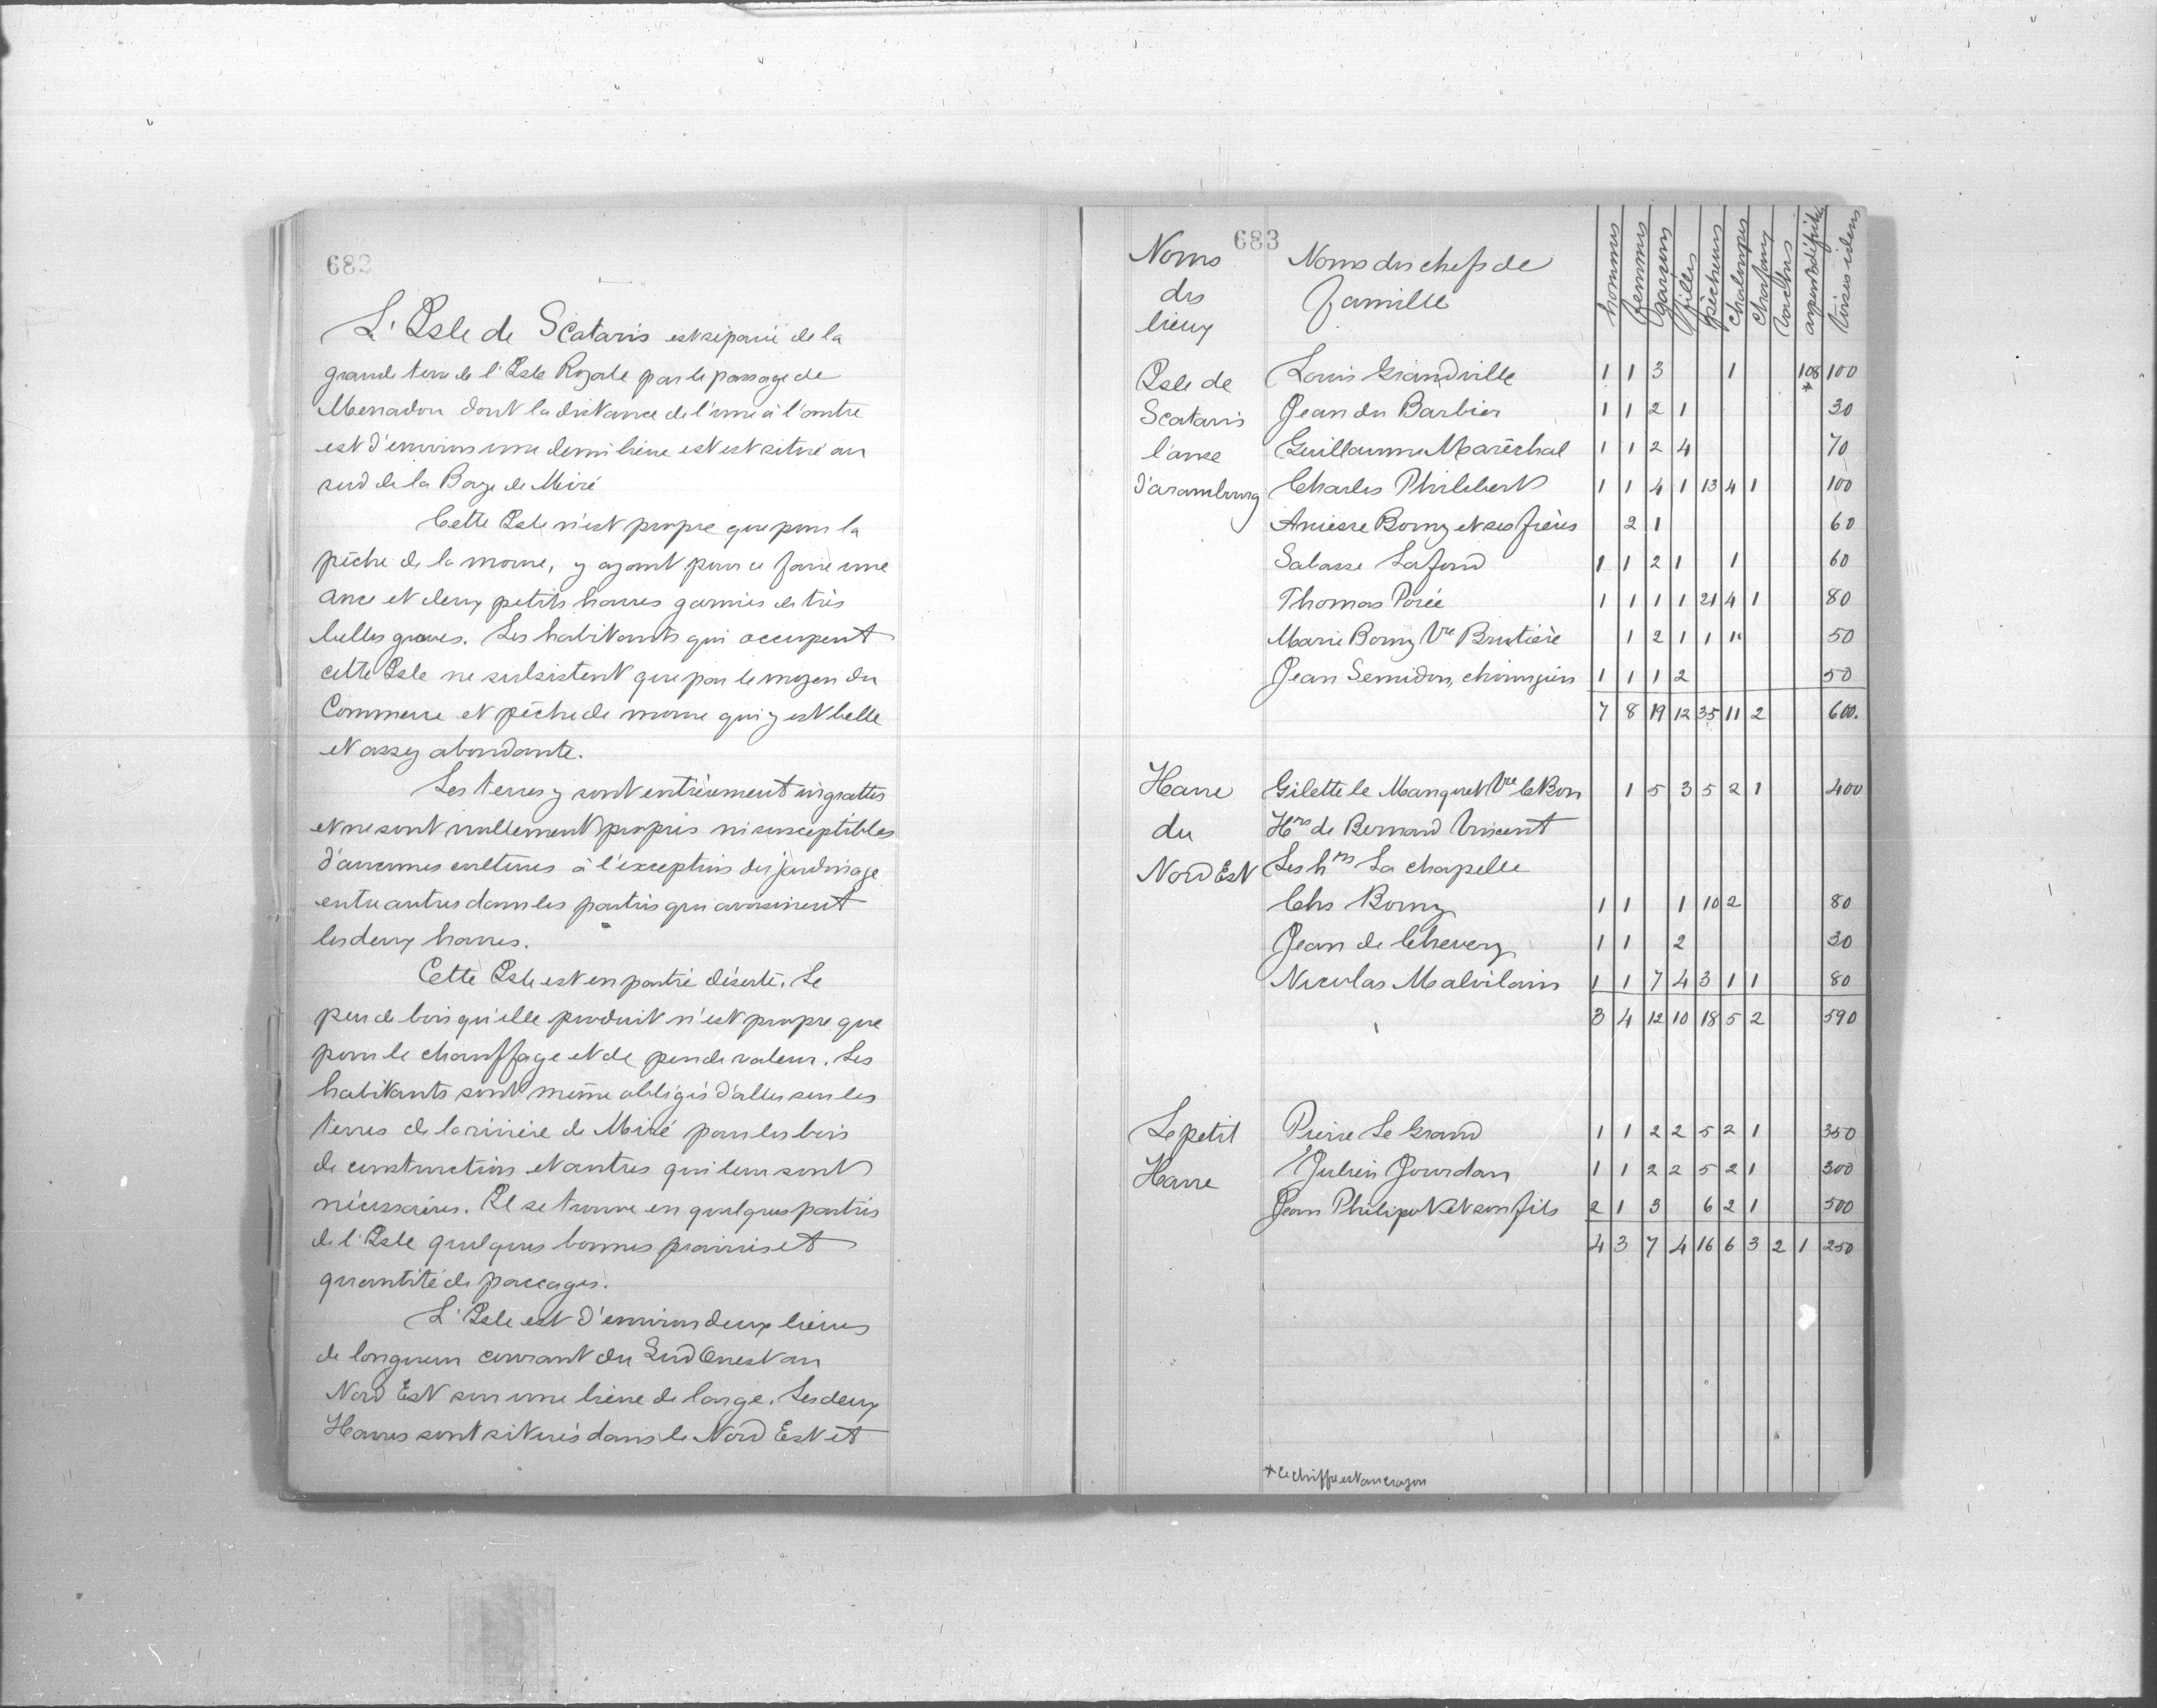 682
L'Isle de Scataris est séparée de la
grande terre de l'Isle Royale par le passage de
Menadou dont la distance de l'une à l'autre
est d'environ une demi lieue est est située au
sud de la Baye de Miré
Cette Isle n'est propre que pour la
pêche de la morue, y ayant pour ce faire une
ance et deux petits havres garnies de très
belles graves. Les habitants qui occupent
cette Isle ne subsistent que par le moyen du
Commerce et pêche de morue qui y est belle
et assez abondante.
Les terres y sont entièrement ingrattes
et ne sont nullement propres ni susceptibles
d'aucunes cultures à l'exception du jardinage
entre autres dans les parties qui avoisinent
les deux havres.
Cette Isle est en partie déserte. Le
peu de bois qu'elle produit n'est propre que
pour le chauffage et de peu de valeur. Les
habitants sont même obligés d'aller sur les
terres de la rivière de Miré pour les bois
de construction et autres qui leur sont
nécessaires. Il se trouve en quelques parties
de l'Isle quelques bonnes prairies et
quantité de paccages.
L'Isle est d'environ deux lieues
de longueur courant du Sud Ouest au
Nord Est sur une lieue de large. Les deux
Havres sont situés dans le Nord Est et
683
Noms des lieux Noms des chefs de famille hommes femmes garçons filles pêcheurs chaloupes chafaux vaches toises idem
Isle de Louis Grandville 1 1 3 1 108* 100
Scataris Jean du Barbier 1 1 2 1 30
l'anse Guillaume Maréchal 1 1 2 4 70
d'aramburg Charles Philibert 1 1 4 1 13 4 1 100
Borny et ses frères 2 1 60
Sabasse Lafond 1 1 2 1 1 60
Thomas Porée 1 1 1 1 21 4 1 80
Marie Borny Vve Brutière 1 2 1 1 1" 50
Jean Semidon, chirurgien 1 1 1 2 50
7 8 19 12 35 11 2 600.
Havre Gilette le Manquet Vve le Bon 1 5 3 5 2 1 400
du Hrs de Bernard Vincent
Nord Est Les hrs La chapelle
Chs Borny 1 1 1 10 2 80
Jean de Chevery 1 1 2 30
Nicolas Malvilain 1 1 7 4 3 1 1 80
3 4 12 10 18 5 2 590
Le petit Pierre Le Grand 1 1 2 2 5 2 1 350
Havre Julien Jourdan 1 1 2 2 5 2 1 300
Jean Philipot et son fils 2 1 3 6 2 1 500
4 3 7 4 16 6 3 2 1 250
*ce chiffre est au crayon